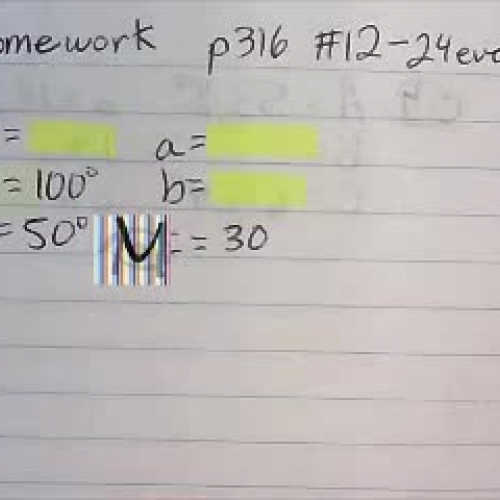 omework p316 #12-24eve
= a=
= 100° b=
= 50° = 30